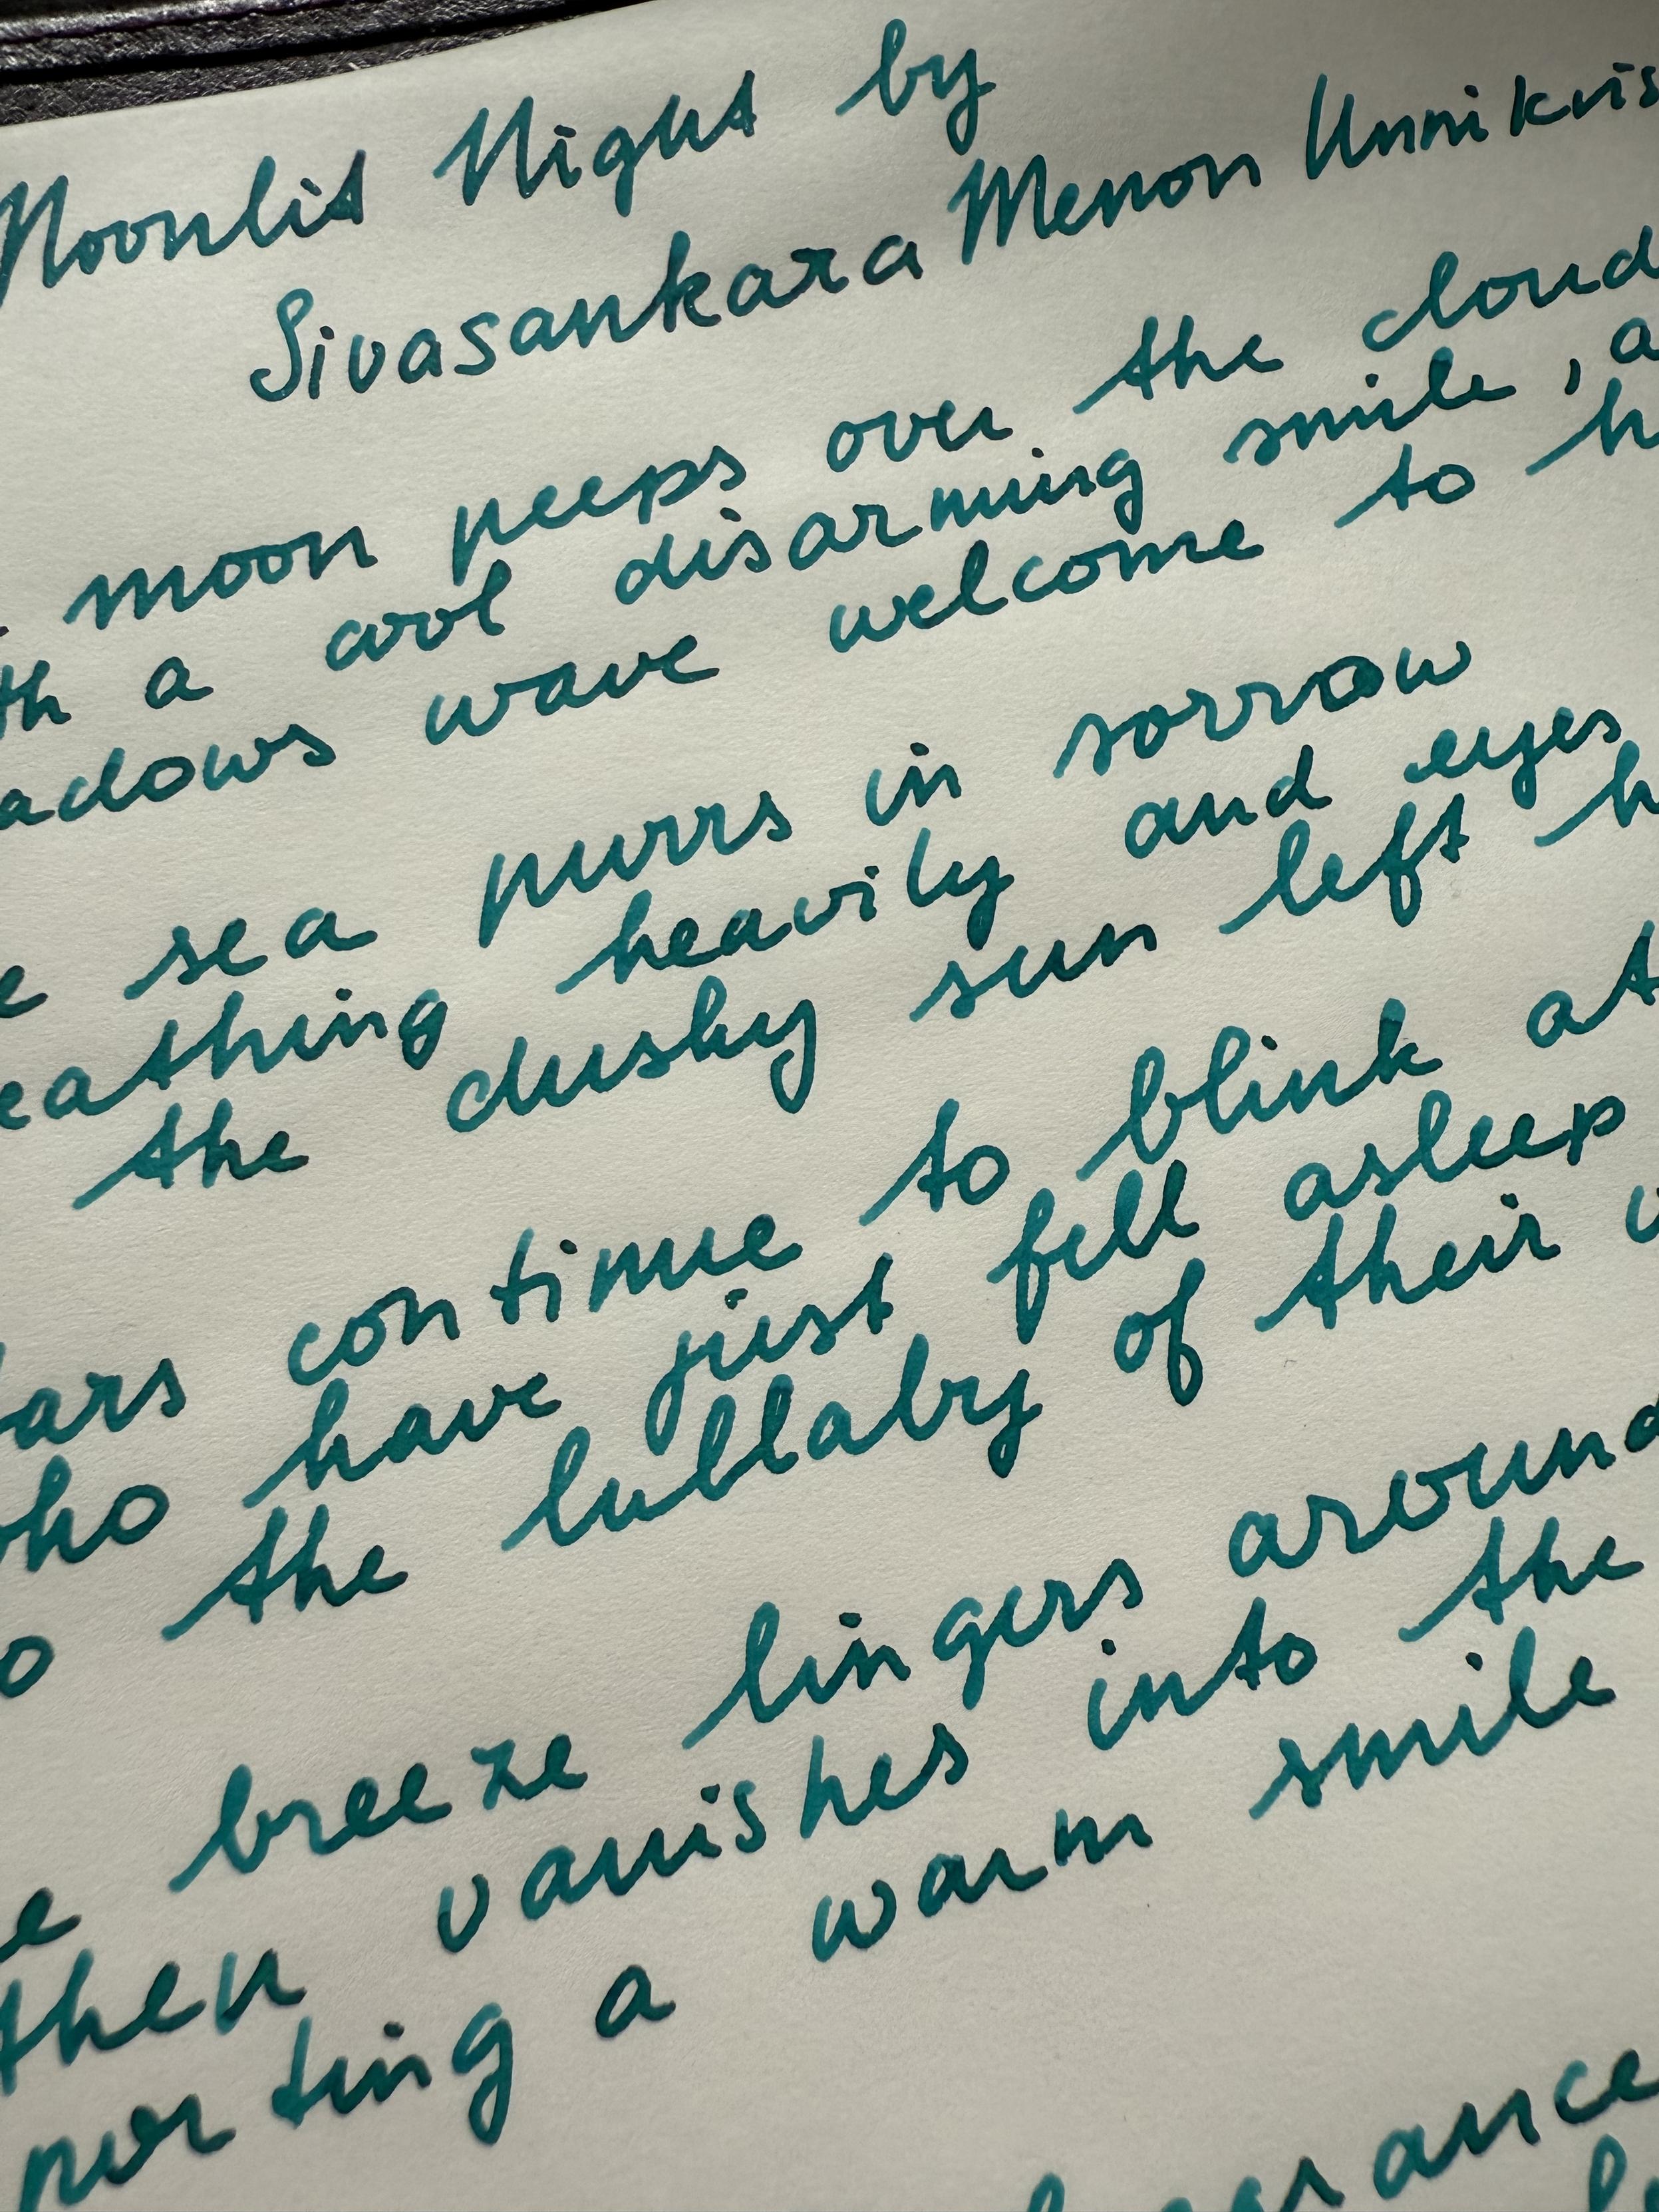 Moonlit Night by
Sivasankara Menon Unnikris
moon peeps over the cloud
th a cool disarming smile, a
adows wave welcome to h
e sea purrs in sorrow
eathing heavily and eyes
the dusky sun left h
ars continue to blink at
who have just fell asleep
o the lullaby of their
e breeze lingers around
then vanishes into the
porting a warm smile
grance